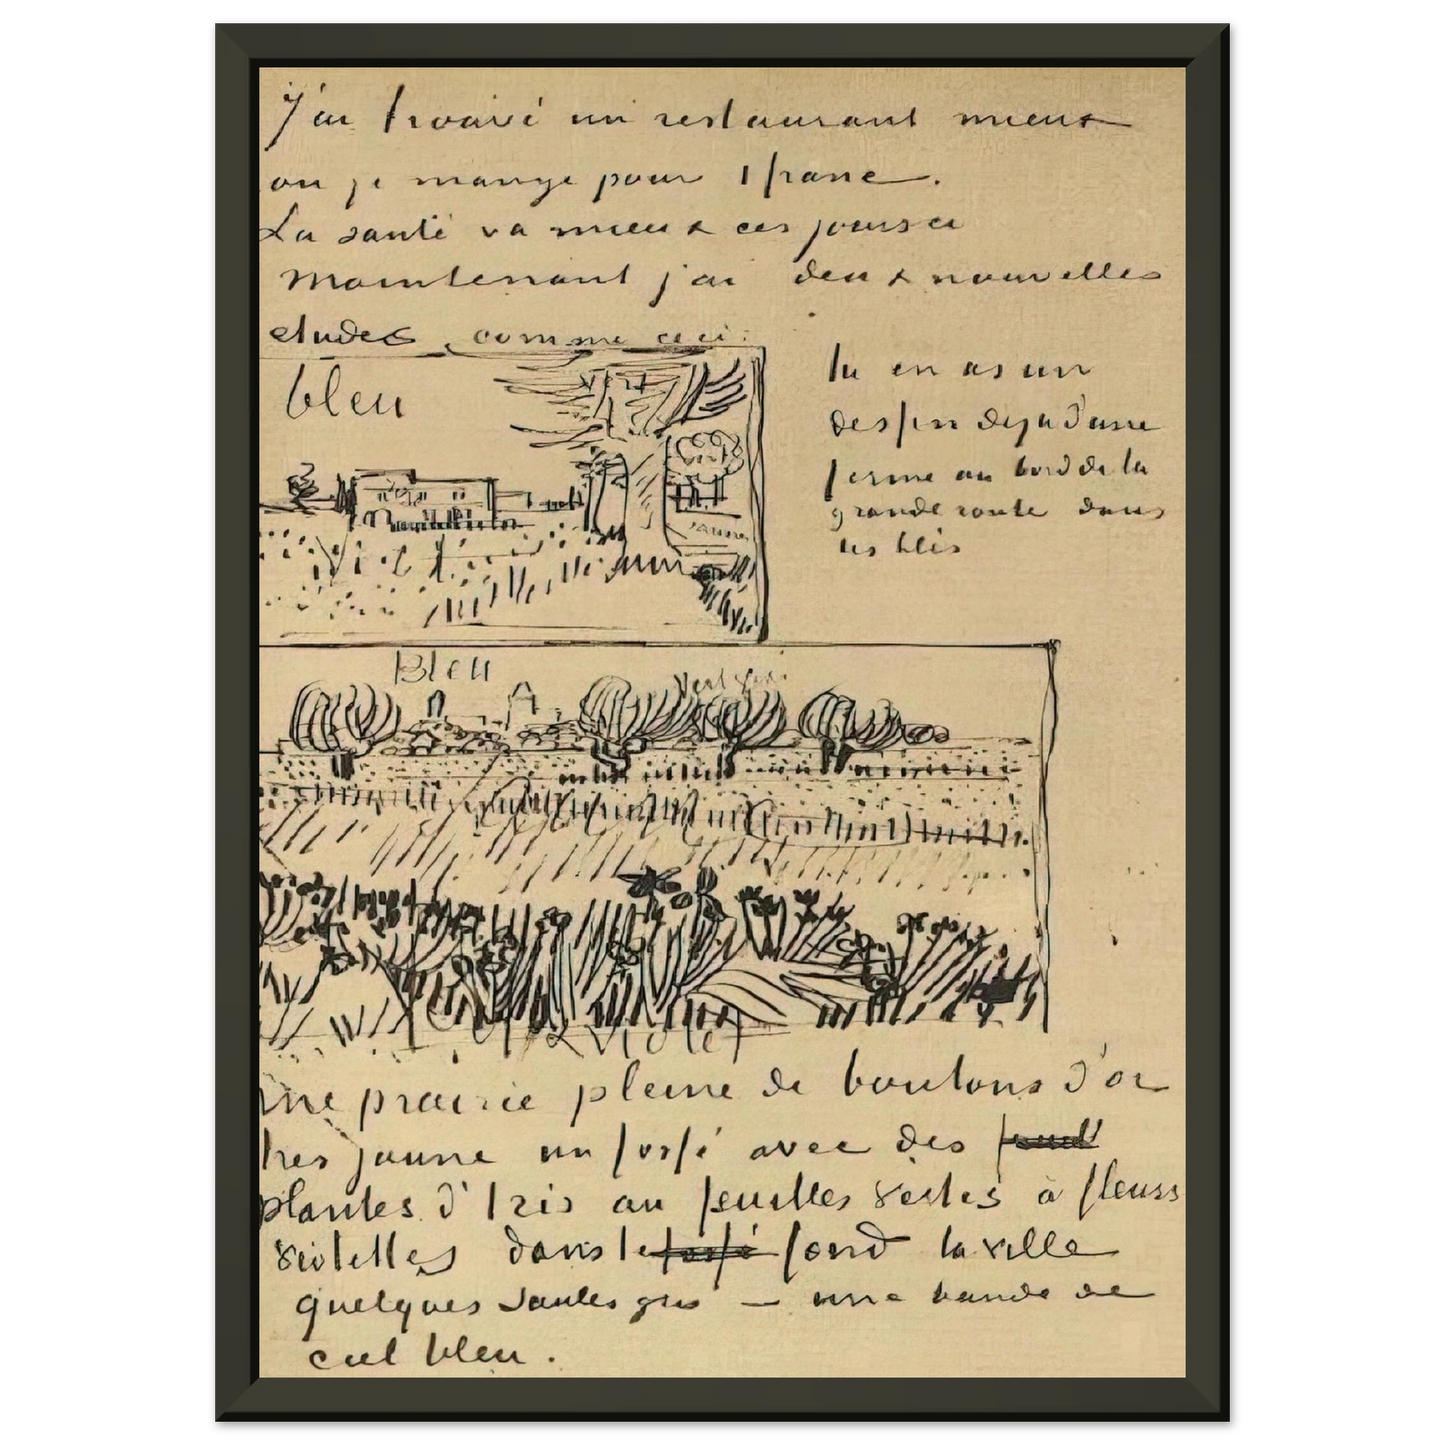 J'ai trouvé un restaurant mieux
ou je mange pour 1 franc.
La santé va mieux ces jours ci
Maintenant j'ai deux nouvelles
etudes comme ceci:
bleu
jaune
tu en as un
dessin deja d'une
ferme au bord de la
grande route dans
les blés
Bleu
vert gris
Violet
Une prairie pleine de boutons d'or
tres jaune un fossé avec des feuill
plantes d'Iris au feuilles vertes à fleurs
violettes dans le fossé fond la ville
quelques saules gris — une bande de
ciel bleu.